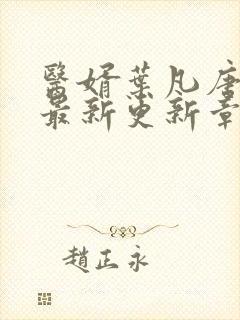 醫婿葉凡唐
最新更新章
趙正永